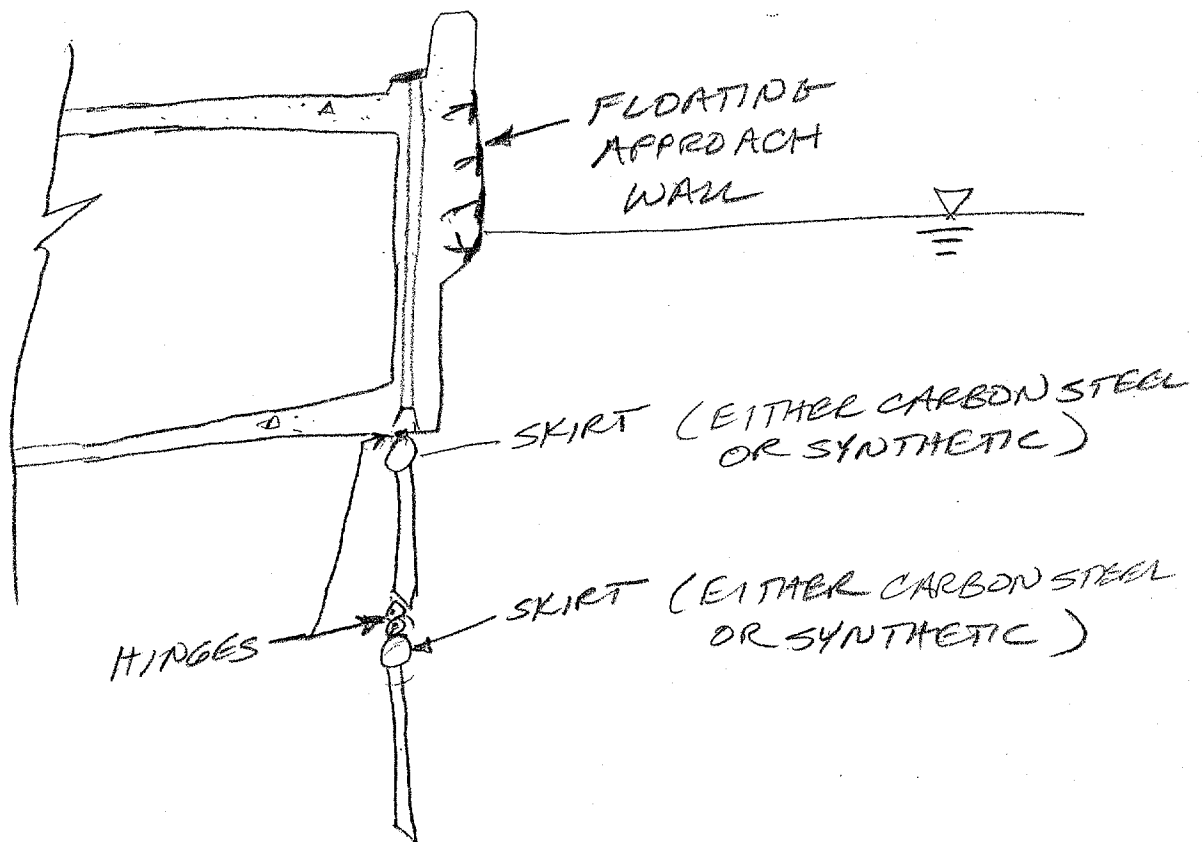 FLOATING
APPROACH
WALL
SKIRT (EITHER CARBON STEEL
OR SYNTHETIC)
SKIRT (EITHER CARBON STEEL
OR SYNTHETIC)
HINGES